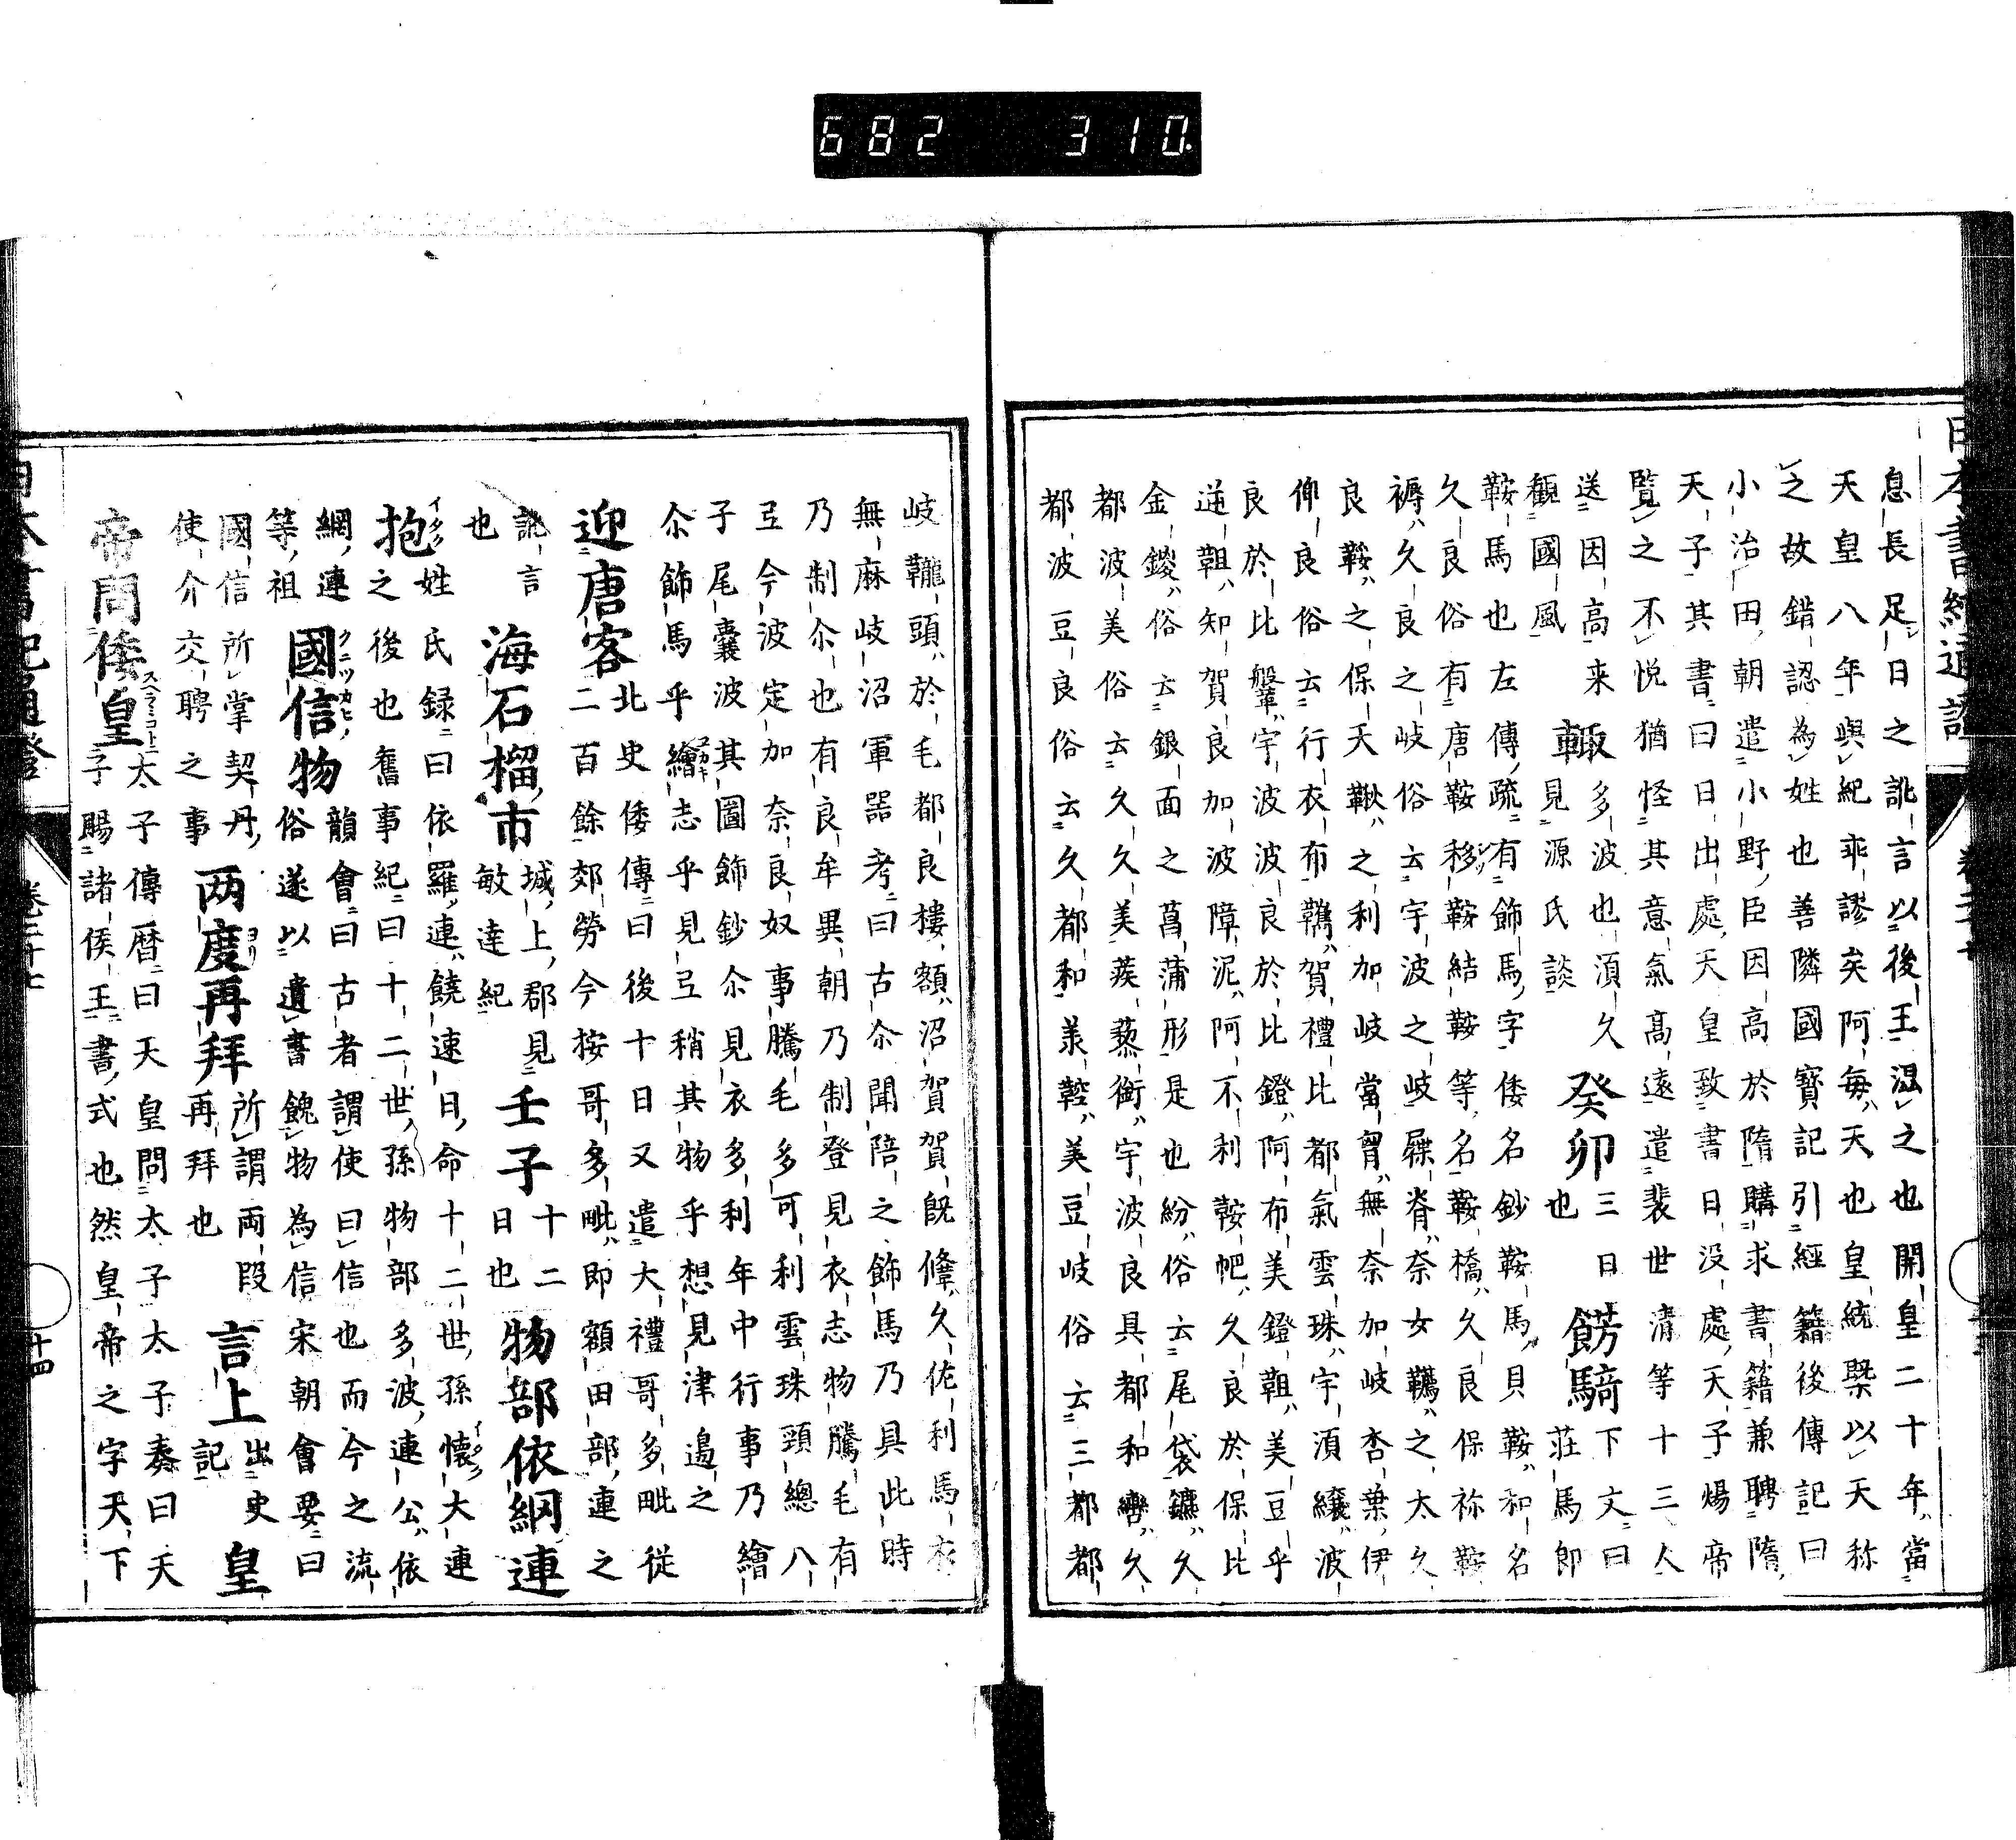 682 310
息長足日之訛言以後王温之也開皇二十年當
天皇八年與紀乖謬矣阿毎天也皇統槩以天称
之故錯認為姓也善隣國寳記引經籍後傳記曰
小治田朝遣小野臣因高於隋購求書籍兼聘隋
天子其書曰日出處天皇致書日没處天子煬帝
覧之不悦猶怪其意氣髙遠遣裴世清等十三人
送因高来觀國風
輙 多波也湏久見源氏談
癸卯 三日也
餝騎 下文曰莊馬即
鞍馬也左傳疏有飾馬字倭名鈔鞍馬貝鞍和名
久良俗有唐鞍移鞍結鞍鞍等名鞍橋久良保祢鞍
褥久良之岐俗云宇波之岐屧脊奈女韉之太久
良鞍之保天鞦之利加岐當胷無奈加岐杏葉伊
俾良俗云行衣布鞴賀禮比都氣雲珠宇湏纕波
良於比盤宇波波良於比鐙阿布美鐙靼美豆乎
逆靼知賀良加波障泥阿不利鞍帊久良於保比
金鍐俗云銀面之菖蒲形是也紛俗云尾袋鑣久
都波美俗云久久美蒺藜銜宇波良具都和轡久
都波豆良俗云久都和美鞚美豆岐俗云三都都
岐龓頭於毛都良樓額沼賀賀旣條久佐利馬衣
無麻岐沼軍噐考曰古尒聞陪之飾馬乃具此時
乃制尒也有良牟異朝乃制登見衣志物騰毛有
弖今波定加奈良奴事騰毛多可利雲珠頭總八
子尾囊波其圖飾鈔尒見衣多利年中行事乃繪
尒飾馬乎繪志乎見弖稍其物乎想見津邉之
迎唐客 北史倭傳曰後十日又遣大禮哥多毗從二百餘郊勞今按哥多毗即額田部連之
訛言也
海石榴市 城上郡見敏達紀
壬子 十二日也
物部依網連
抱 姓氏録曰依羅連饒速日命十二世孫懐大連之後也舊事紀曰十二世孫物部多波連公依
網連等祖
國信物 韻會曰古者謂使曰信也而今之流俗遂以遺書餽物為信宋朝會要曰
國信所掌契丹使介交聘之事
两度再拜 所謂両段再拜也
言上 出史記
皇
帝問倭皇 太子傳暦曰天皇問太子太子奏曰天子賜諸侯王書式也然皇帝之字天下